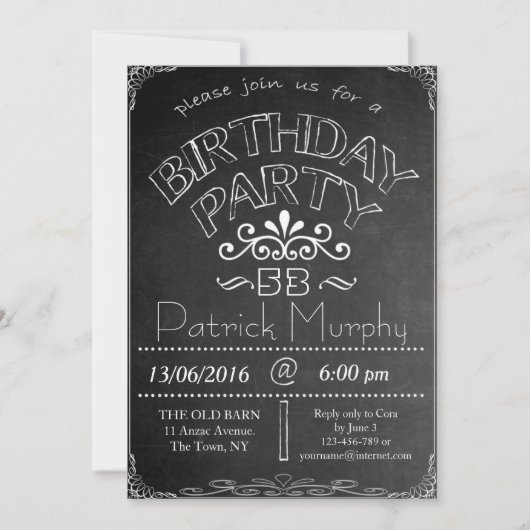 please join us for a
BIRTHDAY
PARTY
53
Patrick Murphy
13/06/2016 @ 6:00 pm
THE OLD BARN
11 Anzac Avenue.
The Town, NY
Reply only to Cora
by June 3
123-456-789 or
yourname@internet.com